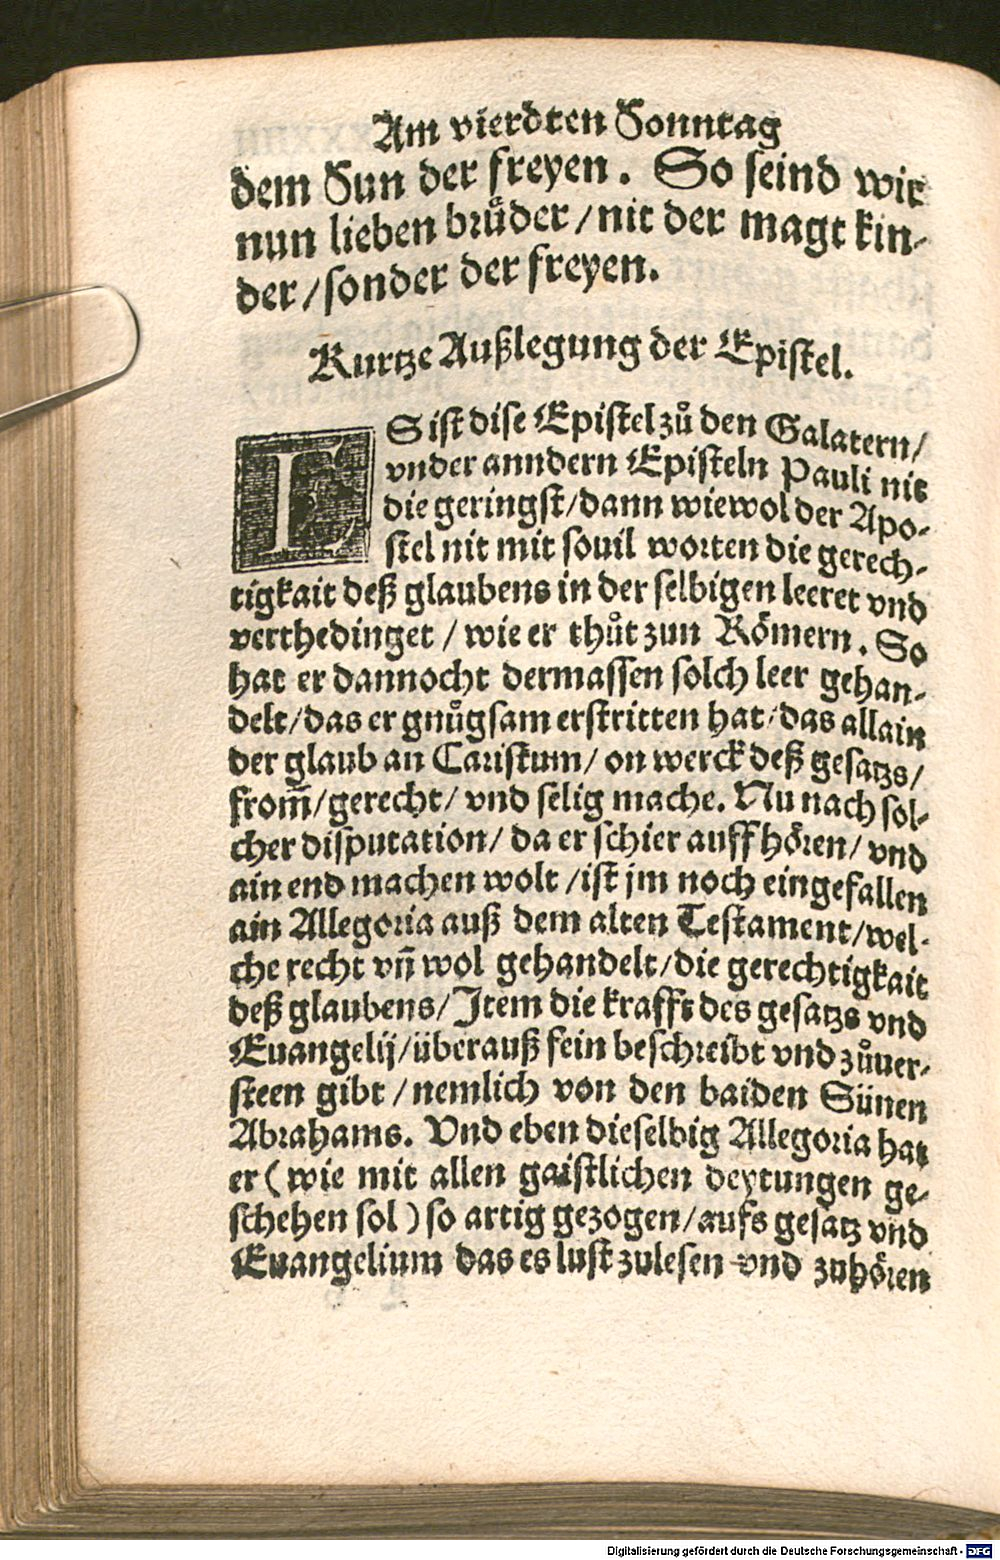 Am vierdten Sonntag
dem Sun der freyen. So seind wir
nun lieben brůder/nit der magt kin-
der/sonder der freyen.
Kurtze Außlegung der Epistel.
ES ist dise Epistel zů den Galatern/
vnder anndern Episteln Pauli nit
die geringst/dann wiewol der Apo-
stel nit mit souil worten die gerech-
tigkait deß glaubens in der selbigen leeret vnd
verthedinget / wie er thůt zun Römern. So
hat er dannocht dermassen solch leer gehan-
delt/das er gnůgsam erstritten hat/das allain
der glaub an Cariſtum/ on werck deß gesatzs/
from̃/gerecht/ vnd selig mache. Nu nach sol-
cher disputation/ da er schier auffhören/ vnd
ain end machen wolt /ist jm noch eingefallen
ain Allegoria auß dem alten Testament/wel-
che recht vñ wol gehandelt/die gerechtigkait
deß glaubens/Item die krafft des gesatzs vnd
Euangelij/überauß fein beschreibt vnd zůuer-
steen gibt /nemlich von den baiden Sünen
Abrahams. Vnd eben dieselbig Allegoria hat
er (wie mit allen gaistlichen deytungen ge-
schehen sol) so artig gezogen/aufs gesatz vnd
Euangelium das es lust zulesen vnd zuhören
Digitalisierung gefördert durch die Deutsche Forschungsgemeinschaft - DFG